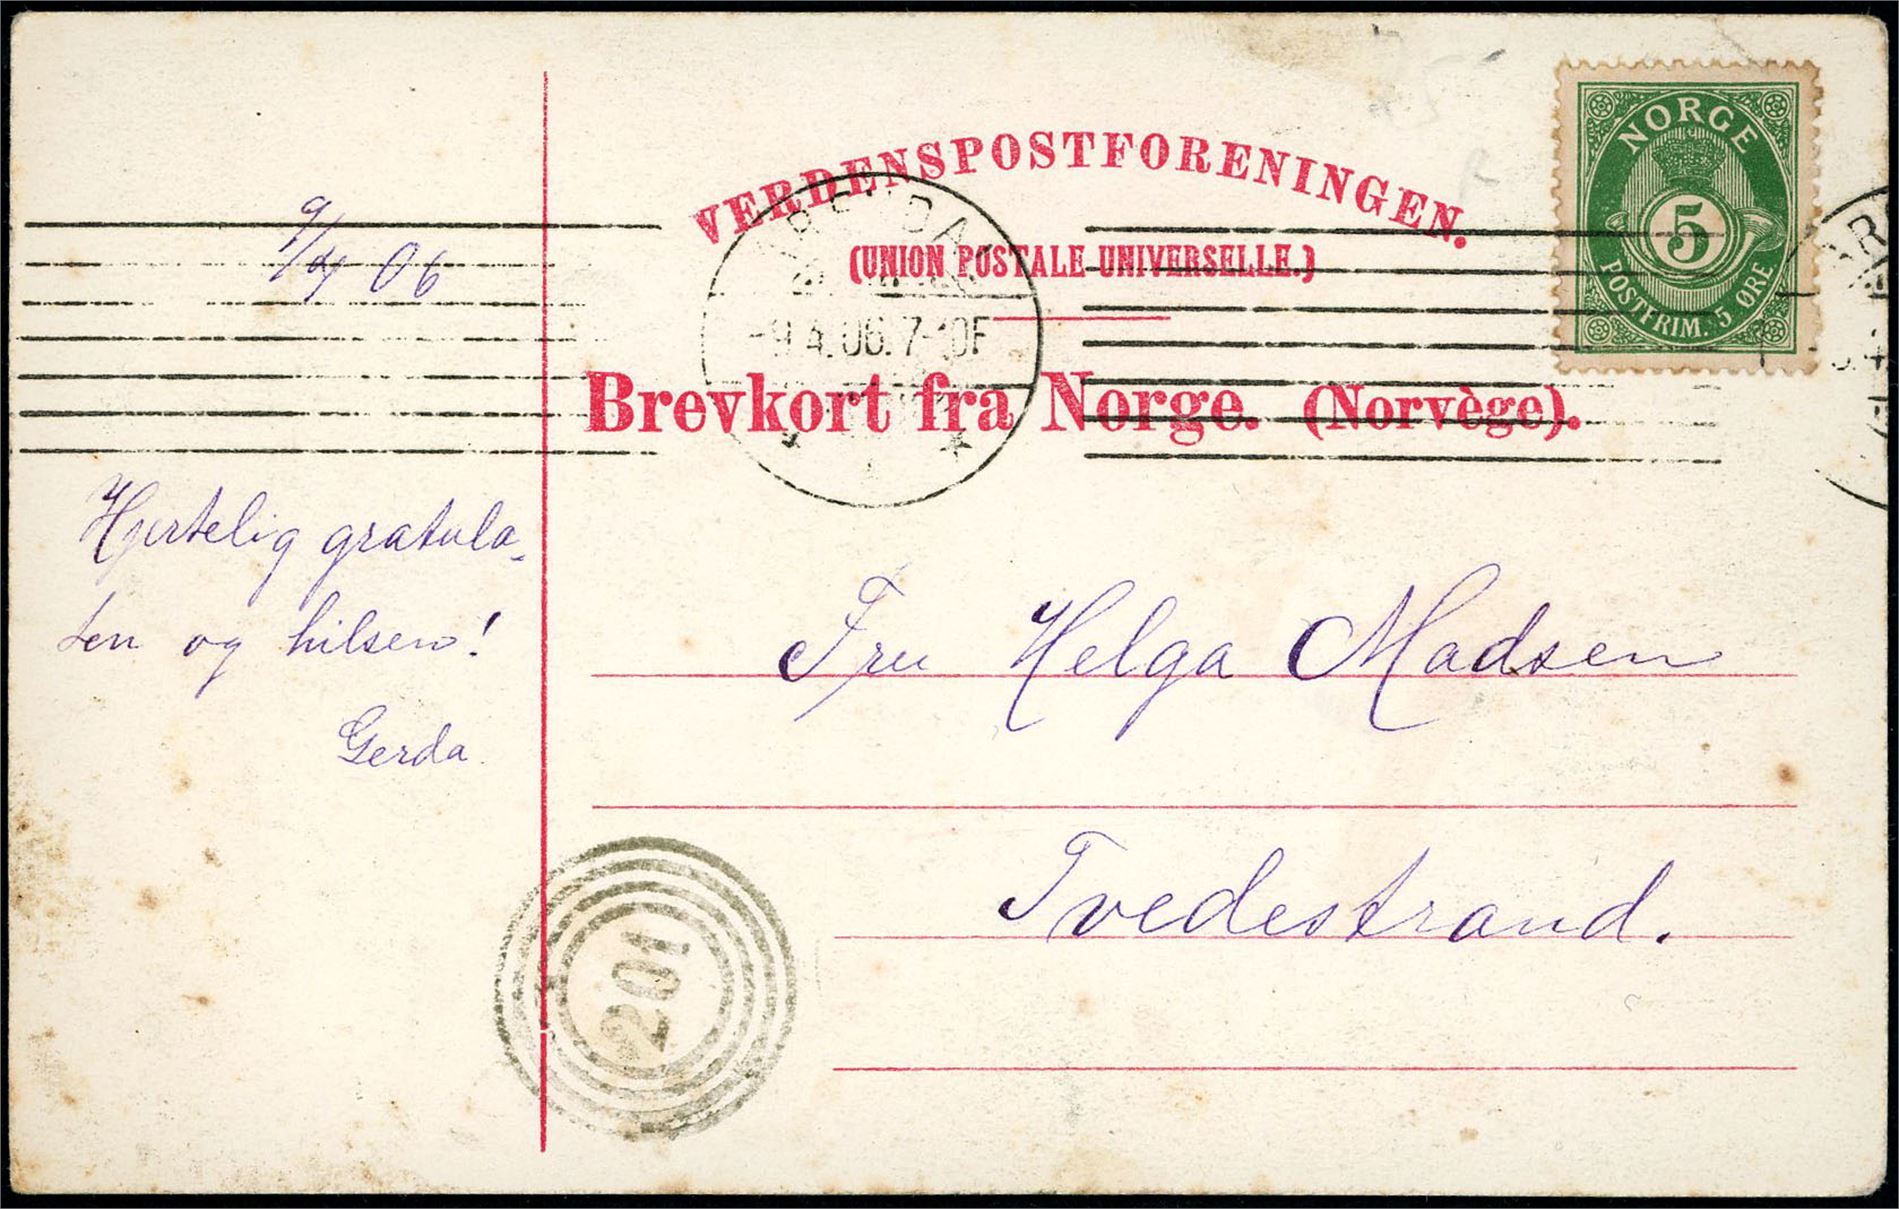 VERDENSPOSTFORENINGEN.
(UNION POSTALE UNIVERSELLE.)
Brevkort fra Norge. (Norvège).
NORGE
5
POSTFRIM. 5 ØRE
ARENDAL
-9.4.06.7-10F
9/4 06
Hjertelig gratula-
sen og hilsen!
Gerda
Fru Helga Madsen
Tvedestrand.
201